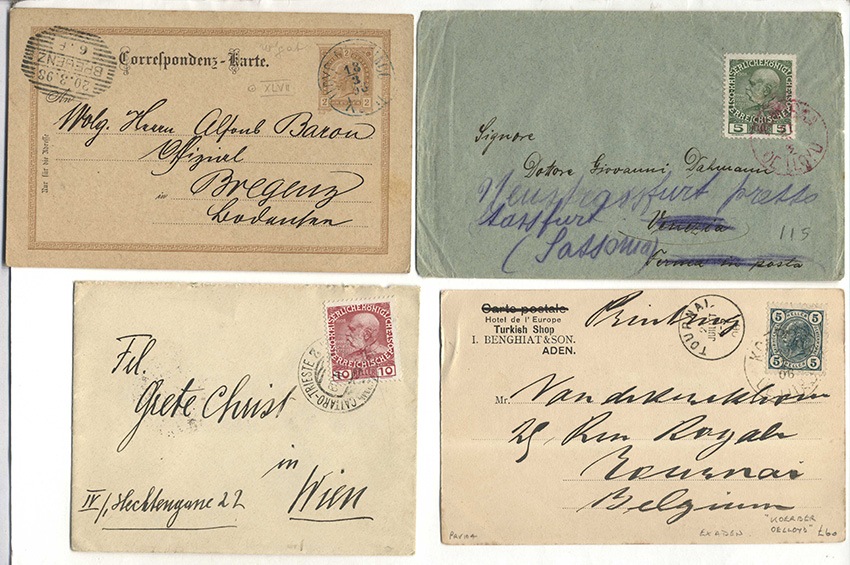 Correspondenz-Karte.
XLVII
2
2
BREGENZ
20.3.98
6.F
An
Wolg. Herrn Alfons Baron
Offizial
in
Bregenz
Bodensee
Nur für die Adresse
KAISERLICHE KÖNIGLICHE
ÖSTERREICHISCHE
5
5
Signore
Dottore Giovanni Dahmann
Stassfurt
(Sassonia)
Venezia
Ferma in posta
115
KAISERLICHE KÖNIGLICHE
ÖSTERREICHISCHE
10
10
CATTARO-TRIESTE
Frl.
Grete Christ
in
Wien
IV/, Hechtengasse 22
Carte postale
Hotel de l' Europe
Turkish Shop
I. BENGHIAT & SON.
ADEN.
Printing
TOURNAI
5
5
HELLER
5
5
06
Mr.
25, Rue Royale
Tournai
Belgium
EX ADEN
"KOERBER
£60